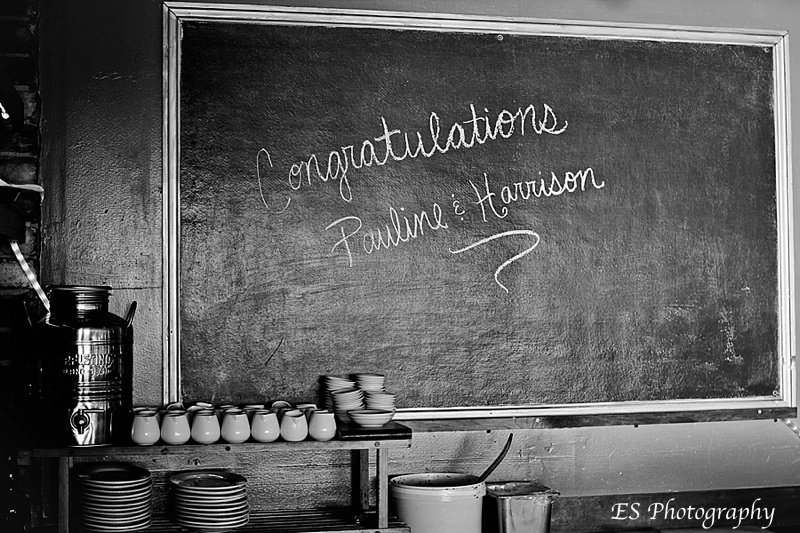 Congratulations
Pauline & Harrison
ES Photography